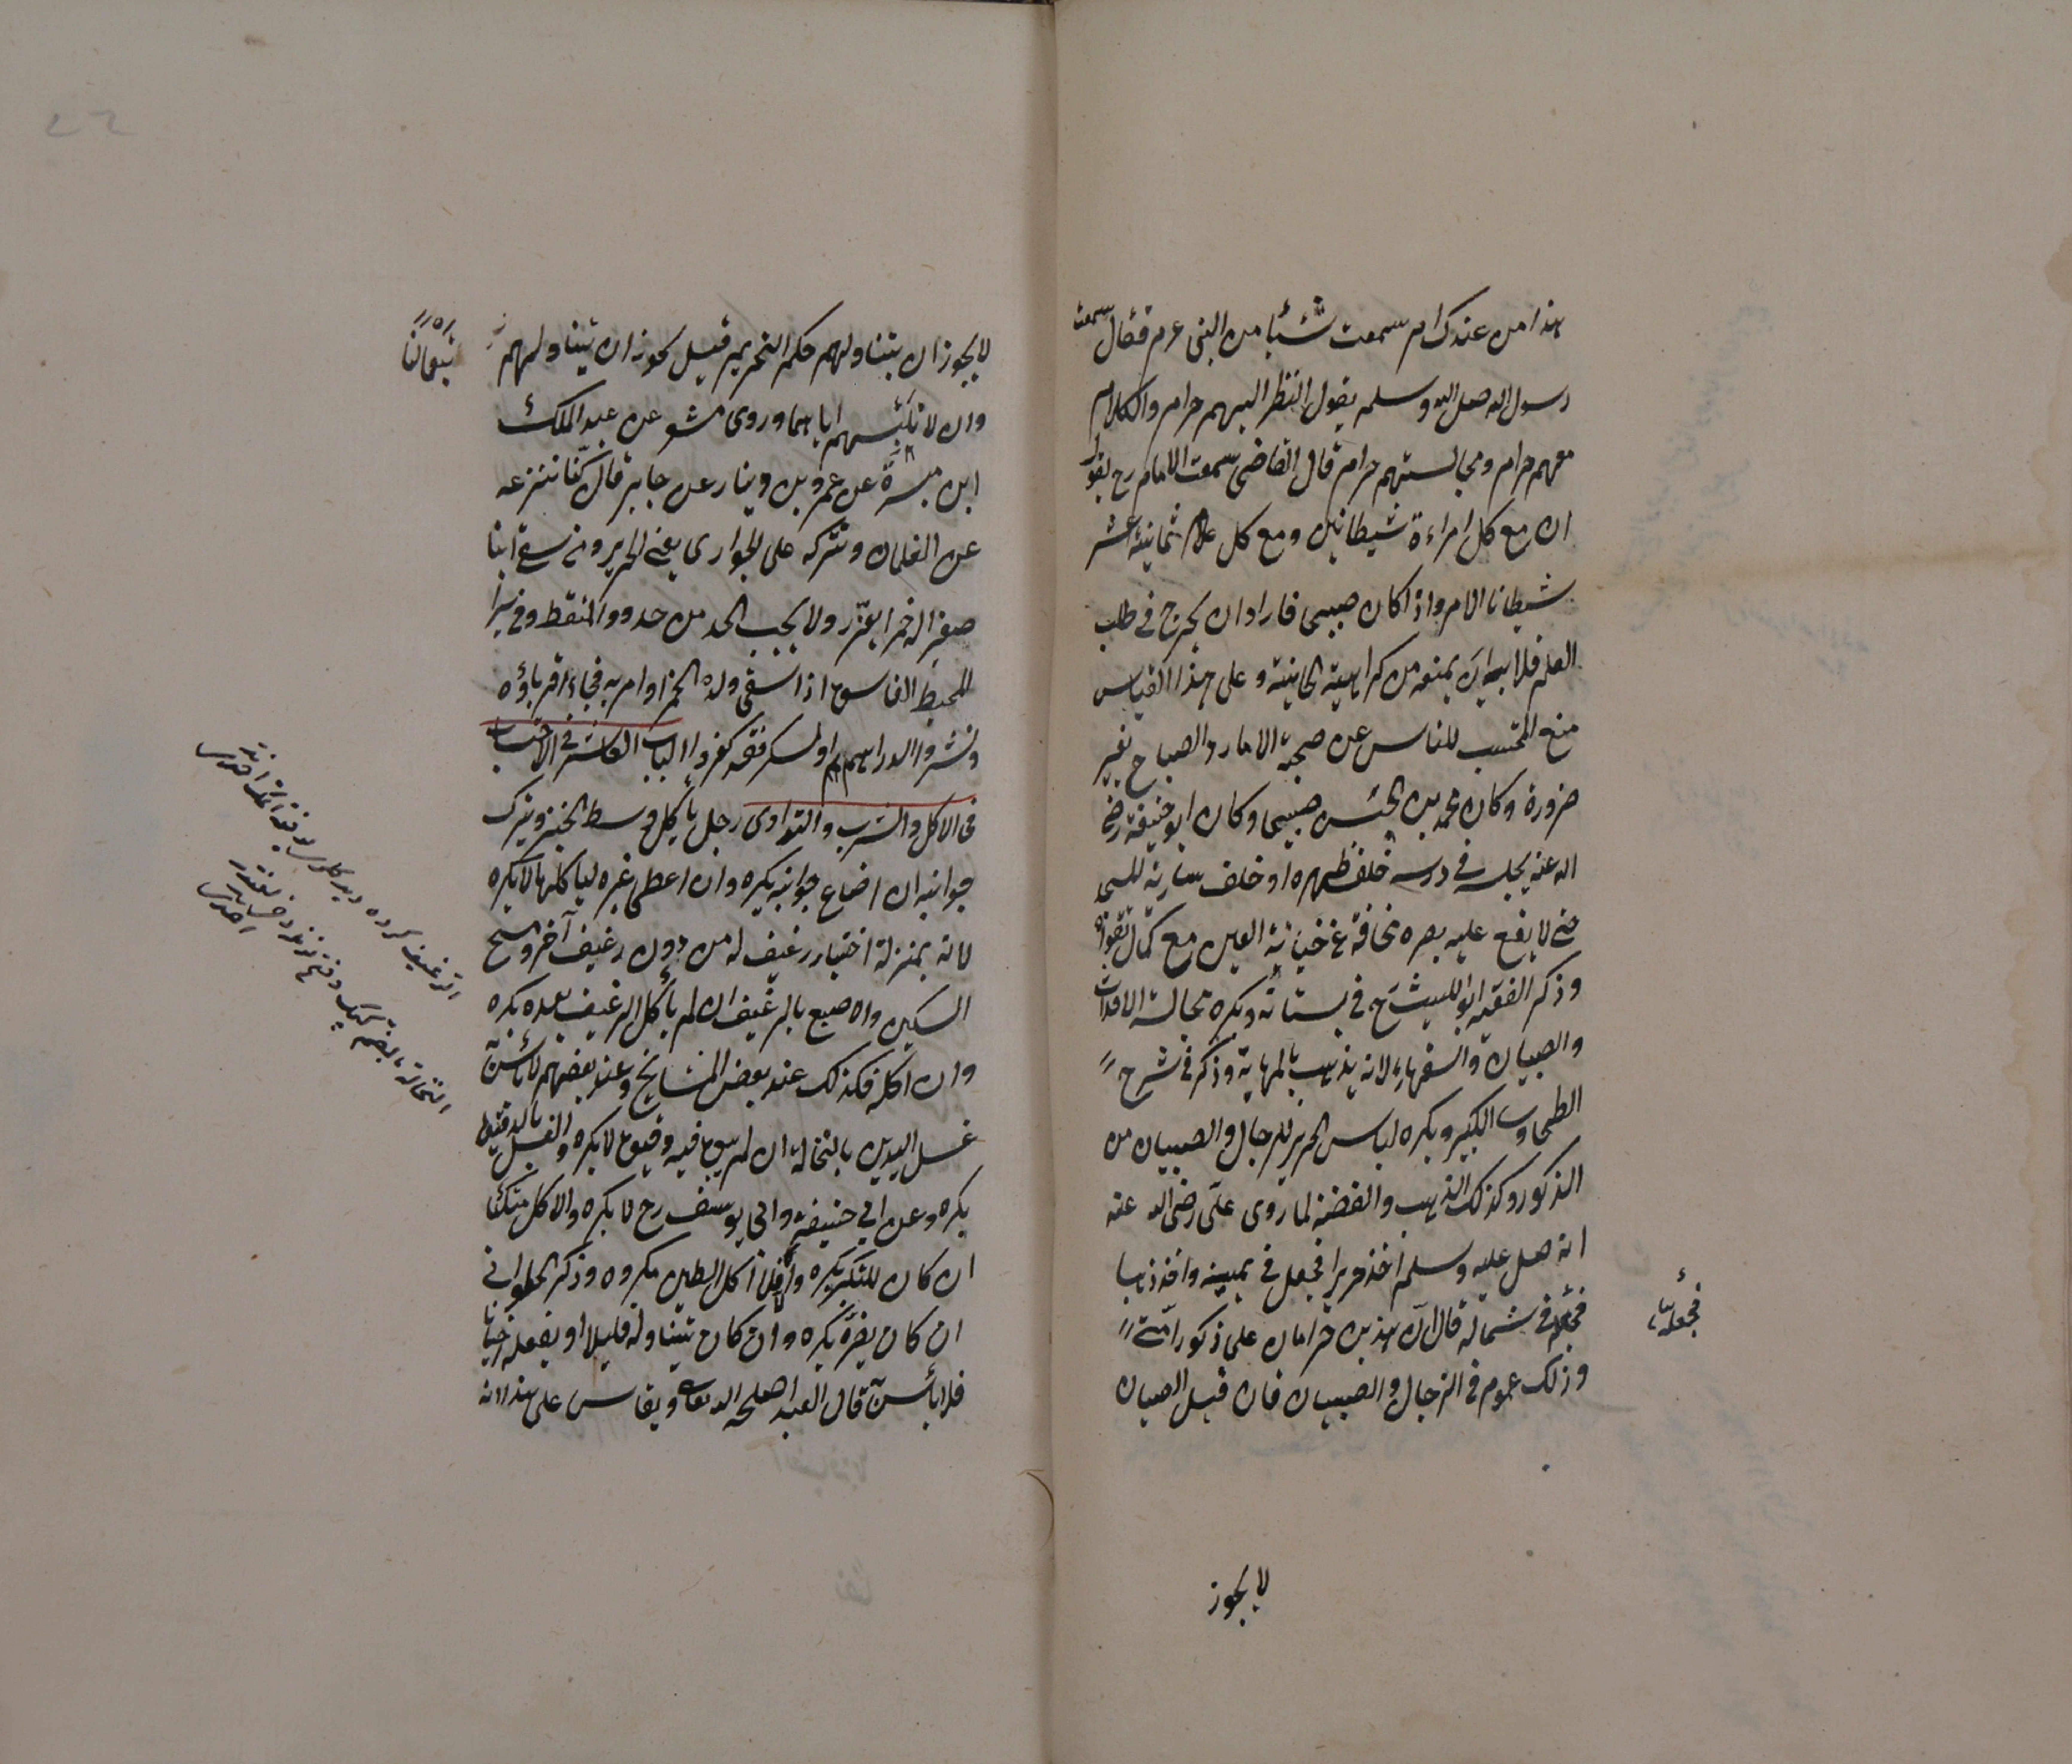 هذا من عندك ام سمعت شيئا من النبى عم فقال سمعت
رسول الله صلى الله وسلم يقول النظر اليهم حرام والكلام
معهم حرام ومجالستهم حرام قال القاضى سمعت الامام رح يقول
ان مع كل امراءة شيطانين ومع كل غلام ثمانية عشر
شيطانا الامر واذا كان صبيحى فاراد ان يخرج فى طلب
العلم فلابيه ان يمنعه من كراهية الخانية وعلى هذا القياس
منع المحتسب للناس عن صحبة الامارد الصباح بغير
ضرورة وكان محمد بن الحسن صبيحى وكان ابو حنيفة رضى
الله عنه يجلسه فى درسه خلف ظهره او خلف سارية المسجد
حتى لا يقع عليه بصره مخافة عن خيانة العين مع كمال تقواه
وذكر الفقيه ابو الليث رح فى بستانه ويكره مجالسة الاحداث
والصبيان والسفهاء لانه يذهب بالمهابة وذكر فى شرح
الطحاوى الكبير ويكره لباس الحرير للرجال والصبيان من
الذكور وكذلك الذهب والفضة لما روى على رضى الله عنه
انه صلى عليه وسلم اخذ حريرا فجعل فى يمينه واخذ ذهبا
فجعله فى شماله قال ان هذين حرامان على ذكور امتى
وذلك عموم فى الرجال والصبيان فان قيل الصبيان
فجعله
لا يجوز
لا يجوز ان يتناولهم حكم التحريم قيل يجوز ان يتناولهم
وان لا نلبسهم اياهما وروى مسعر عن عبد الملك
ابن ميسرة عن عمرو بن دينار عن جابر قال كنا ننزعه
عن الغلمان ونتركه على الجوارى يعنى الحرير ومن سقى ابنا
صغيرا له خمرا يعزر ولا يجب الحد من حدود الملتقط وفى
المحيط الفاسق اذا سقى ولده الخمر او امر به فجاء اقرباؤه
ونشروا الدراهم او السكر فقد كفروا الباب العاشر فى الاحتساب
فى الاكل والشرب والتداوى رجل ياكل وسط الخبز ويترك
جوانبه ان اضاع جوانبه يكره وان اعطى غيره لياكلها لا يكره
لانه بمنزلة اختيار رغيف له من دون رغيف آخر ومسح
السكين والاصبع بالرغيف ان لم ياكل الرغيف بعده يكره
وان اكله فكذلك عند بعض المشايخ وعند بعضهم لا باس به
غسل اليدين بالنخالة ان لم يبق فيه دقيق لا يكره والغسل بالدقيق
يكره وعن ابى حنيفة وابى يوسف رح لا يكره والاكل متكئا
ان كان للتكبر يكره والا فلا اكل الطين مكروه وذكر الحلوانى
ان كان يضره يكره وان كان يتناوله قليلا او يفعله احيانا
فلا باس به قال العبد اصلحه الله تعالى ويقاس على هذا انه